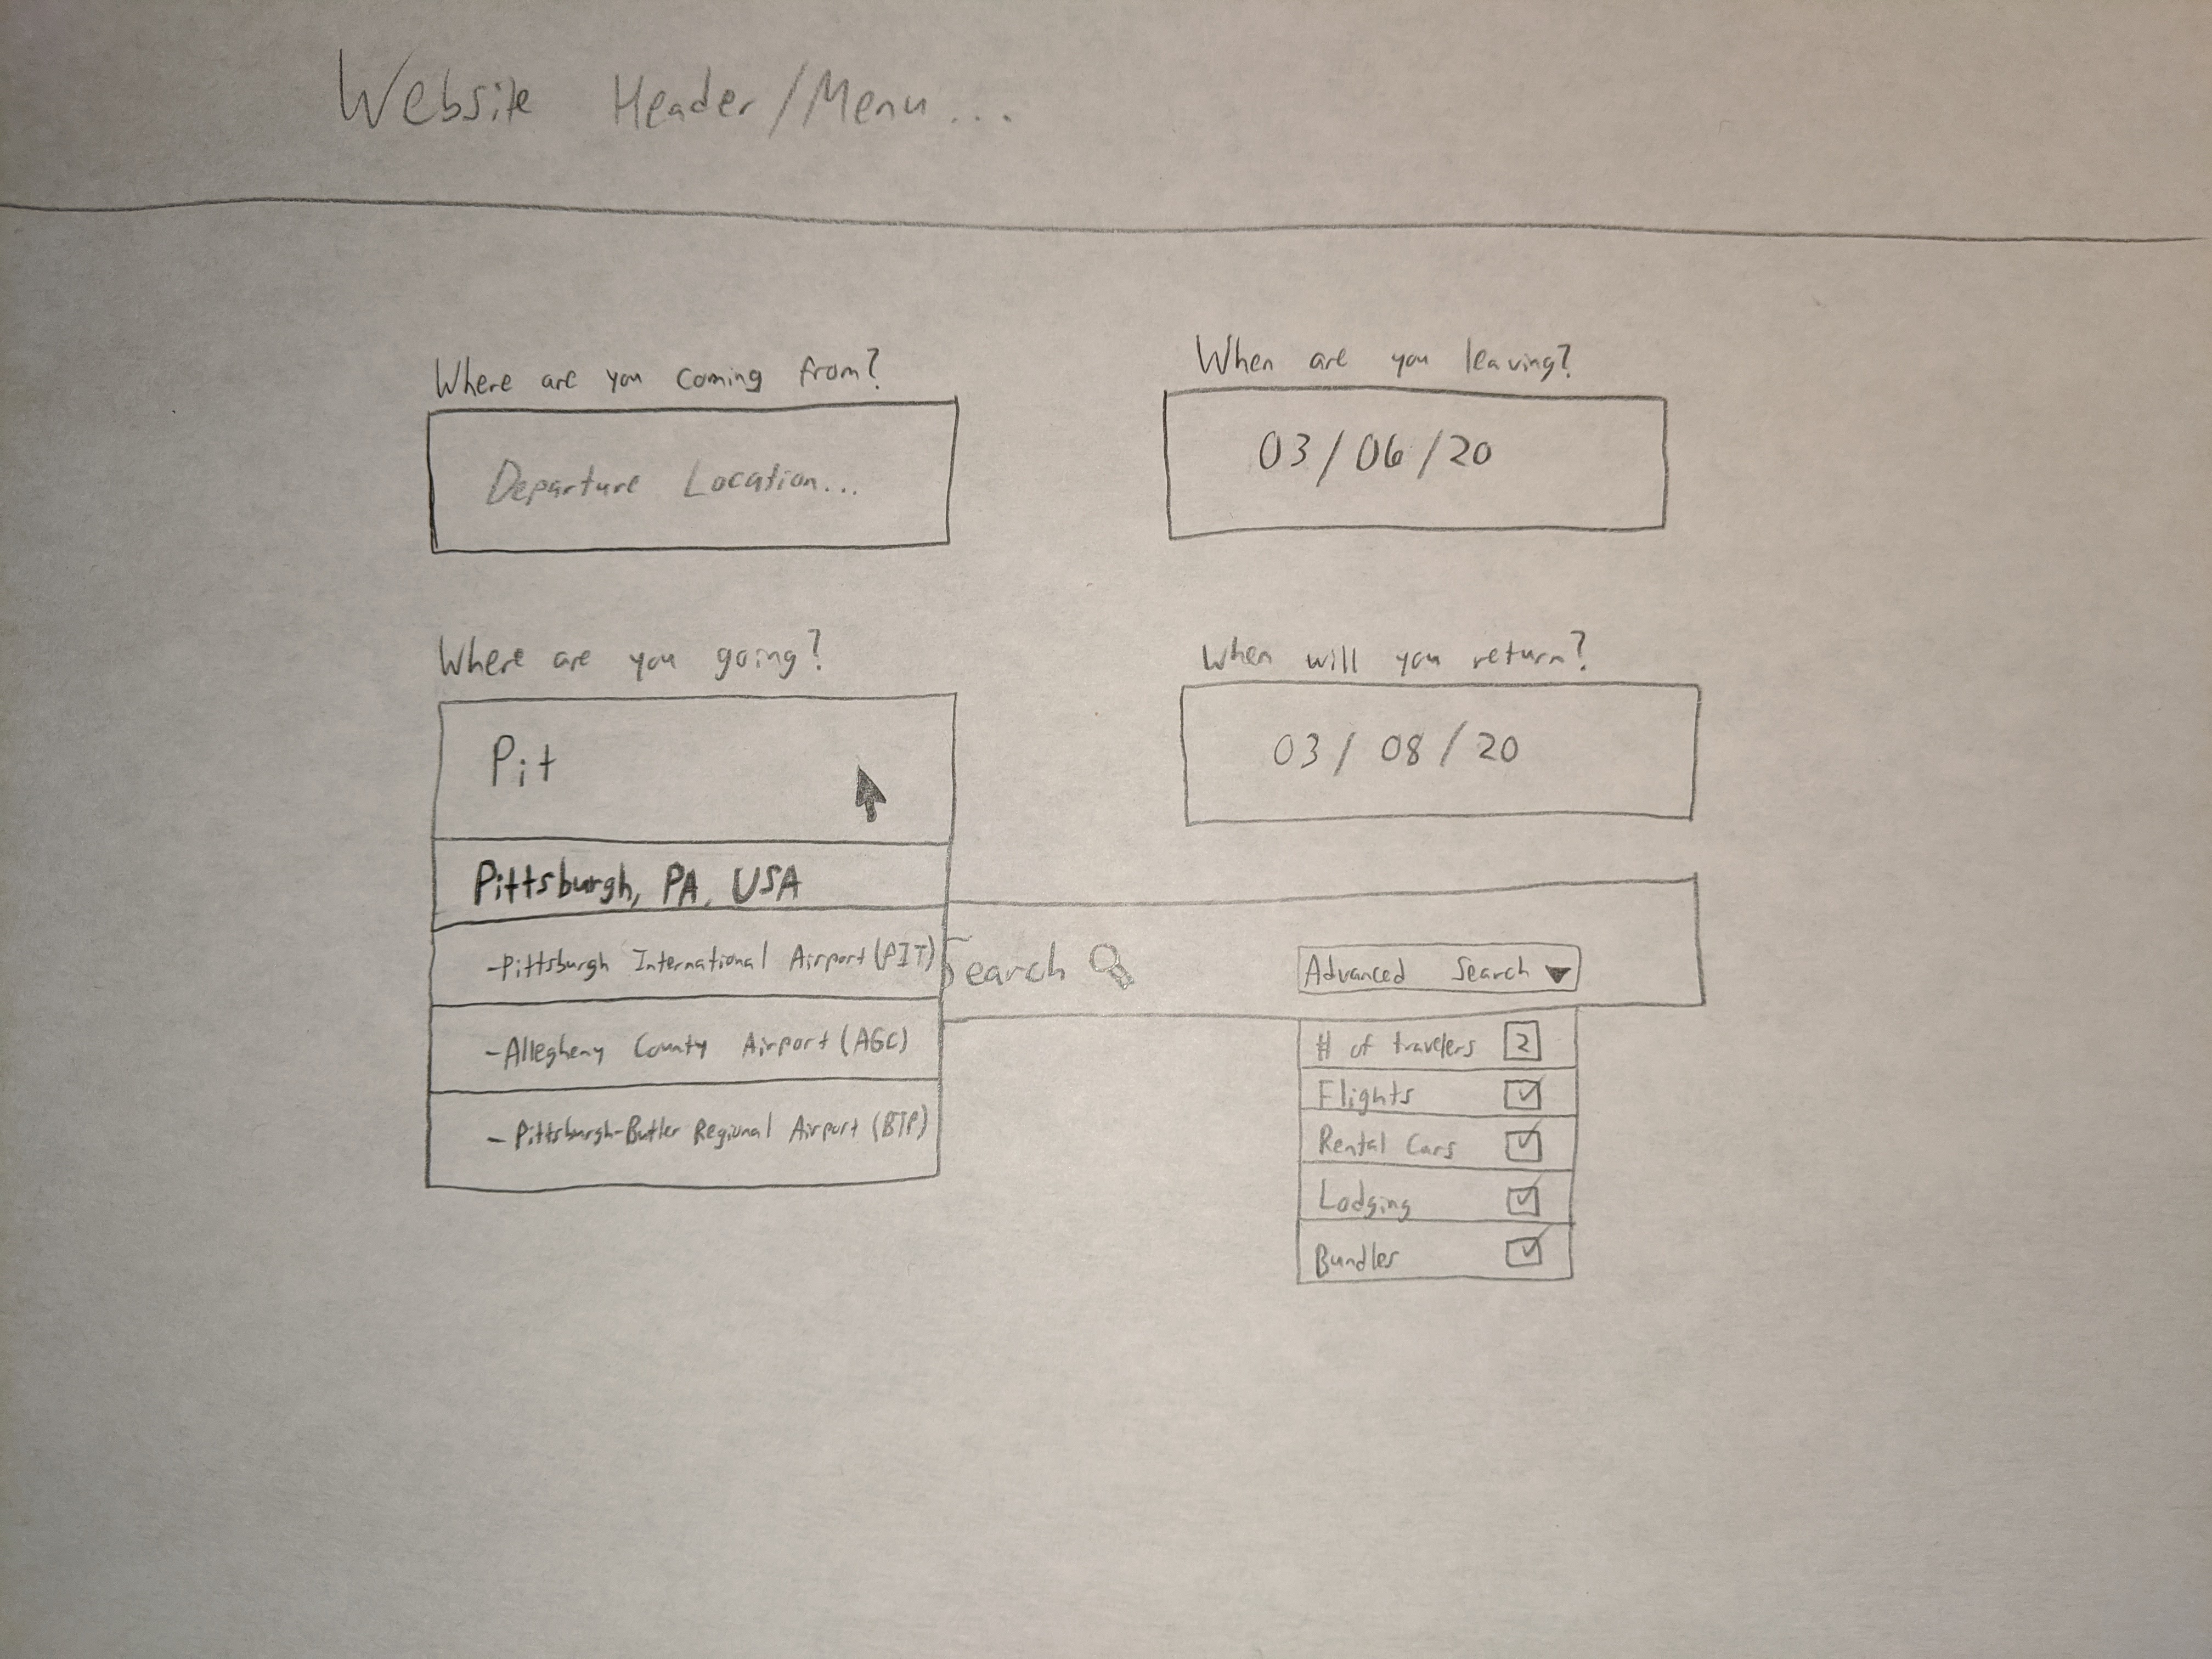 Website Header/Menu...
Where are you coming from?
Departure Location...
When are you leaving?
03/06/20
Where are you going?
Pit
When will you return?
03/08/20
Pittsburgh, PA, USA
-Pittsburgh International Airport (PIT)
-Allegheny County Airport (AGC)
-Pittsburgh-Butler Regional Airport (BTP)
Search
Advanced Search
# of travelers 2
Flights
Rental Cars
Lodging
Bundles